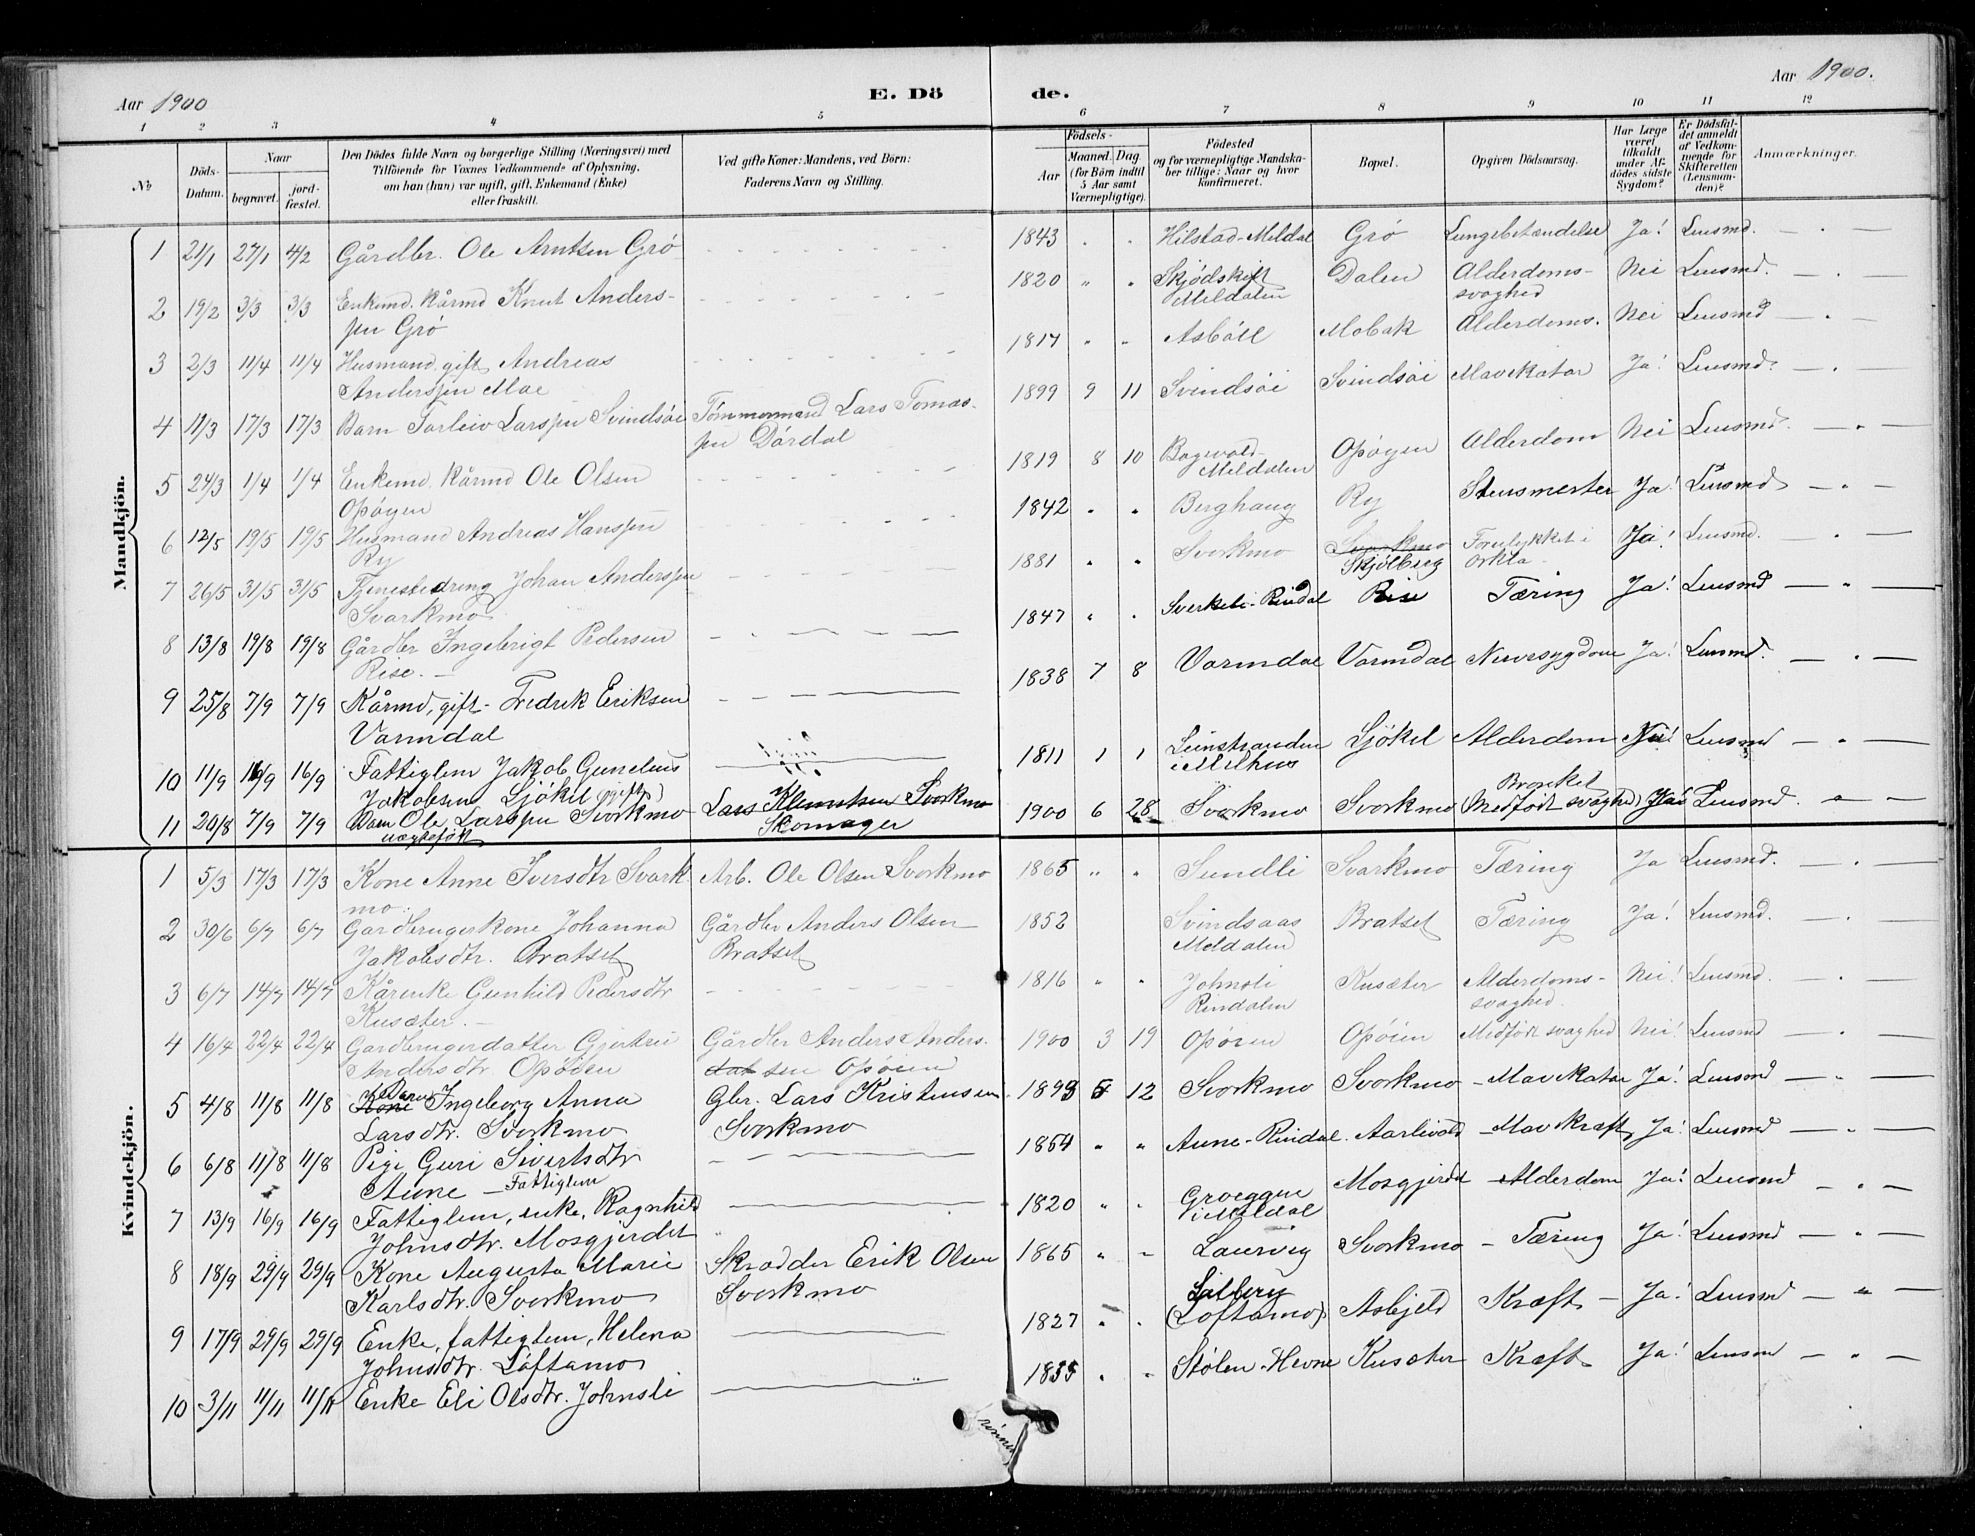 Aar 1900
E. Dö
de.
Aar 1900.
1 2 3 4 5 6 7 8 9 10 11 12
No
Döds-Datum.
Naar
begravet.
jord-fæstet.
Den Dödes fulde Navn og borgerlige Stilling (Næringsvei) med
Tilföiende for Voxnes Vedkommende af Oplysning,
om han (hun) var ugift, gift, Enkemand (Enke)
eller fraskilt.
Ved gifte Koner: Mandens, ved Börn:
Faderens Navn og Stilling.
Födsels-
Aar
Maaned. Dag
(for Börn indtil
5 Aar samt
Værnepligtige).
Födested
og for værnepligtige Mandska-
ber tillige: Naar og hvor
konfirmeret.
Bopæl.
Opgiven Dödsaarsag.
Har Læge
været
tilkaldt
under Af-
dödes sidste
Sygdom?
Er Dödsfal-
det anmeldt
af Vedkom-
mende for
Skifteretten
(Lensman-
den)?
Anmærkninger.
Mandkjön.
1 21/1 27/1 4/2 Gårdbr. Ole Arntsen Grø 1843 " " Hilstad-Meldal Grø Lungebetændelse Ja! Lensmd. — " —
2 19/2 3/3 3/3 Enkemd. Kårmd Knut Anders-
sen Grø 1820 " " Skjødskift
Meldalen Dalen Alderdoms-
svaghed Nei Lensmd. — " —
3 2/3 11/4 11/4 Husmand, gift, Andreas
Anderssen Moe 1817 " " Asbøll Mobak Alderdoms. Nei Lensmd — " —
4 11/3 17/3 17/3 Barn Torleiv Larssen Svindsøi Tømmermand Lars Tomas-
sen Dørdal 1899 9 11 Svindsøi Svindsøi Mavekatar Ja! Lensmd. — " —
5 24/3 1/4 1/4 Enkemd. Kårmd Ole Olsen
Opøyen 1819 8 10 Meldalen Opøyen Alderdom Nei Lensmd. — " —
6 12/5 19/5 19/5 Husmand Andreas Hanssen
Ry 1842 " " Berghaug Ry Stensmerter Ja! Lensmd — " —
7 26/5 31/5 31/5 Tjenestedreng Johan Anderssen
Svorkmo 1881 " " Svorkmo Svorkmo
Skjølberg Forulykket i
Orkla. Ja! Lensmd. — " —
8 13/8 19/8 19/8 Gårdbr Ingebrigt Pedersen
Rise. — 1847 " " Rindal Rise Tæring Ja! Lensmd — " —
9 25/8 7/9 7/9 Kårmd, gift - Fredrik Eriksen
Varmdal 1838 7 8 Varmdal Varmdal Nervesygdom Ja! Lensmd. — " —
10 11/9 16/9 16/9 Fattiglem Jakob Gunelius
Jakobsen Ljøkel (gift) 1811 1 1 Leinstranden
i Melhus Ljøkel Alderdom Ja! Lensmd — " —
11 20/8 7/9 7/9 Barn Ole Larssen Svorkmo
uægtefødt Lars Klemetsen Svorkmo
Skomager 1900 6 28 Svorkmo Svorkmo Medfødt svaghed Lensmd. — " —
Kvindekjön.
1 5/3 17/3 17/3 Kone Anne Iversdtr Svork-
mo. Arb. Ole Olsen Svorkmo 1865 " " Sundli Svorkmo Tæring Ja Lensmd. — " —
2 30/6 6/7 6/7 Gårdbrugerkone Johanna
Jakobsdtr. Bratset Gårdbr Anders Olsen
Bratset 1852 Svindsaas
Meldalen Bratset Tæring Ja! Lensmd. — " —
3 6/7 14/7 14/7 Kårenke Gunhild Pedersdtr
Kusæter. — 1816 " " Johnsli
Rindalen Kusæter Alderdoms-
svaghed. Nei! Lensmd. — " —
4 16/4 22/4 22/4 Gårdbrugerdatter Gjertrud
Andersdtr. Opøien Gårdbr Anders Anders-
sen Opøien 1900 3 19 Opøien Opøien Medfødt svaghed Nei! Lensmd — " —
5 4/8 11/8 11/8 Kone Barn Ingeborg Anna
Larsdtr. Svorkmo Gbr. Lars Kristensen
Svorkmo 1899 5 12 Svorkmo Svorkmo - Mavekatar Ja! Lensmd — " —
6 6/8 11/8 11/8 Pige Guri Sivertsdtr
Aune — Fattiglem 1854 " " Aune-Rindal. Aarlivold - Mavekræft Ja! Lensmd — " —
7 13/9 16/9 16/9 Fattiglem, enke, Ragnhild
Johnsdtr. Mosgjerdet 1820 " " i Meldal Mosgjerdet - Alderdom Ja! Lensmd — " —
8 18/9 29/9 29/9 Kone Augusta Marie
Karlsdtr. Svorkmo Skrædder Erik Olsen
Svorkmo 1865 " " Laurvig Svorkmo - Tæring Ja! Lensmd — " —
9 17/9 29/9 29/9 Enke, fattiglem, Helena
Johnsdtr. Løftamo 1827 " " Solberg
(Løftamo) Asbjeld Kræft — Ja! Lensmd — " —
10 3/11 11/11 11/11 Enke Eli Olsdtr. Johnsli 1835 " " Stølen-Hevne Kusæter Kræft Ja! Lensmd — " —